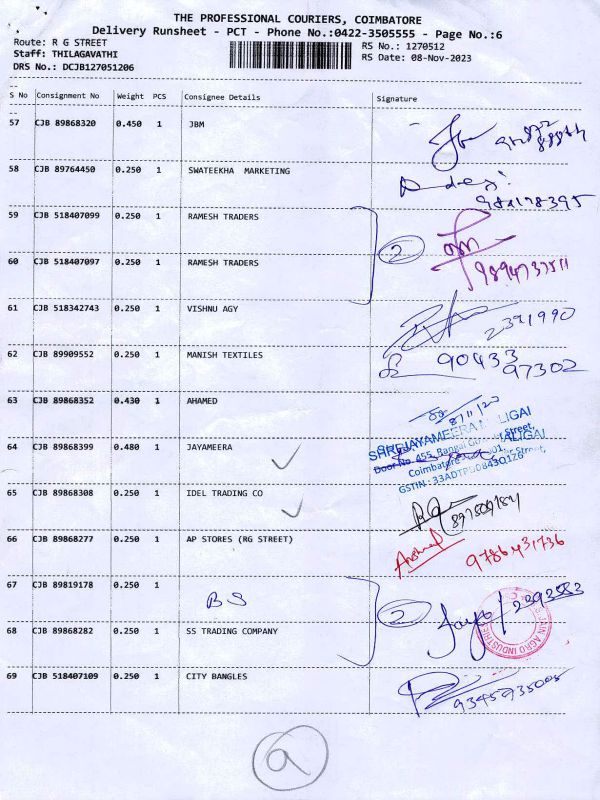 THE PROFESSIONAL COURIERS, COIMBATORE
Delivery Runsheet - PCT - Phone No.:0422-3505555 - Page No.:6
Route: R G STREET
RS No.: 1270512
Staff: THILAGAVATHI
RS Date: 08-Nov-2023
DRS No.: DCJB127051206
--
S No Consignment No Weight PCS Consignee Details Signature
--
57 CJB 89868320 0.450 1 JBM
58 CJB 89764450 0.250 1 SWATEEKHA MARKETING
59 CJB 518407099 0.250 1 RAMESH TRADERS
2
60 CJB 518407097 0.250 1 RAMESH TRADERS
9894737511
61 CJB 518342743 0.250 1 VISHNU AGY
2391990
62 CJB 89909552 0.250 1 MANISH TEXTILES
90433
97302
63 CJB 89868352 0.430 1 AHAMED
8/11/23
64 CJB 89868399 0.480 1 JAYAMEERA
SHREJAYAMEERA MALIGAI
Door No. 455,
Coimbatore
GSTIN : 33ADTPD0843Q1Z6
65 CJB 89868308 0.250 1 IDEL TRADING CO
66 CJB 89868277 0.250 1 AP STORES (RG STREET)
9786431736
67 CJB 89819178 0.250 1
BS
2
68 CJB 89868282 0.250 1 SS TRADING COMPANY
JAIN AGRO INDUSTRIES
69 CJB 518407109 0.250 1 CITY BANGLES
9345935005
a